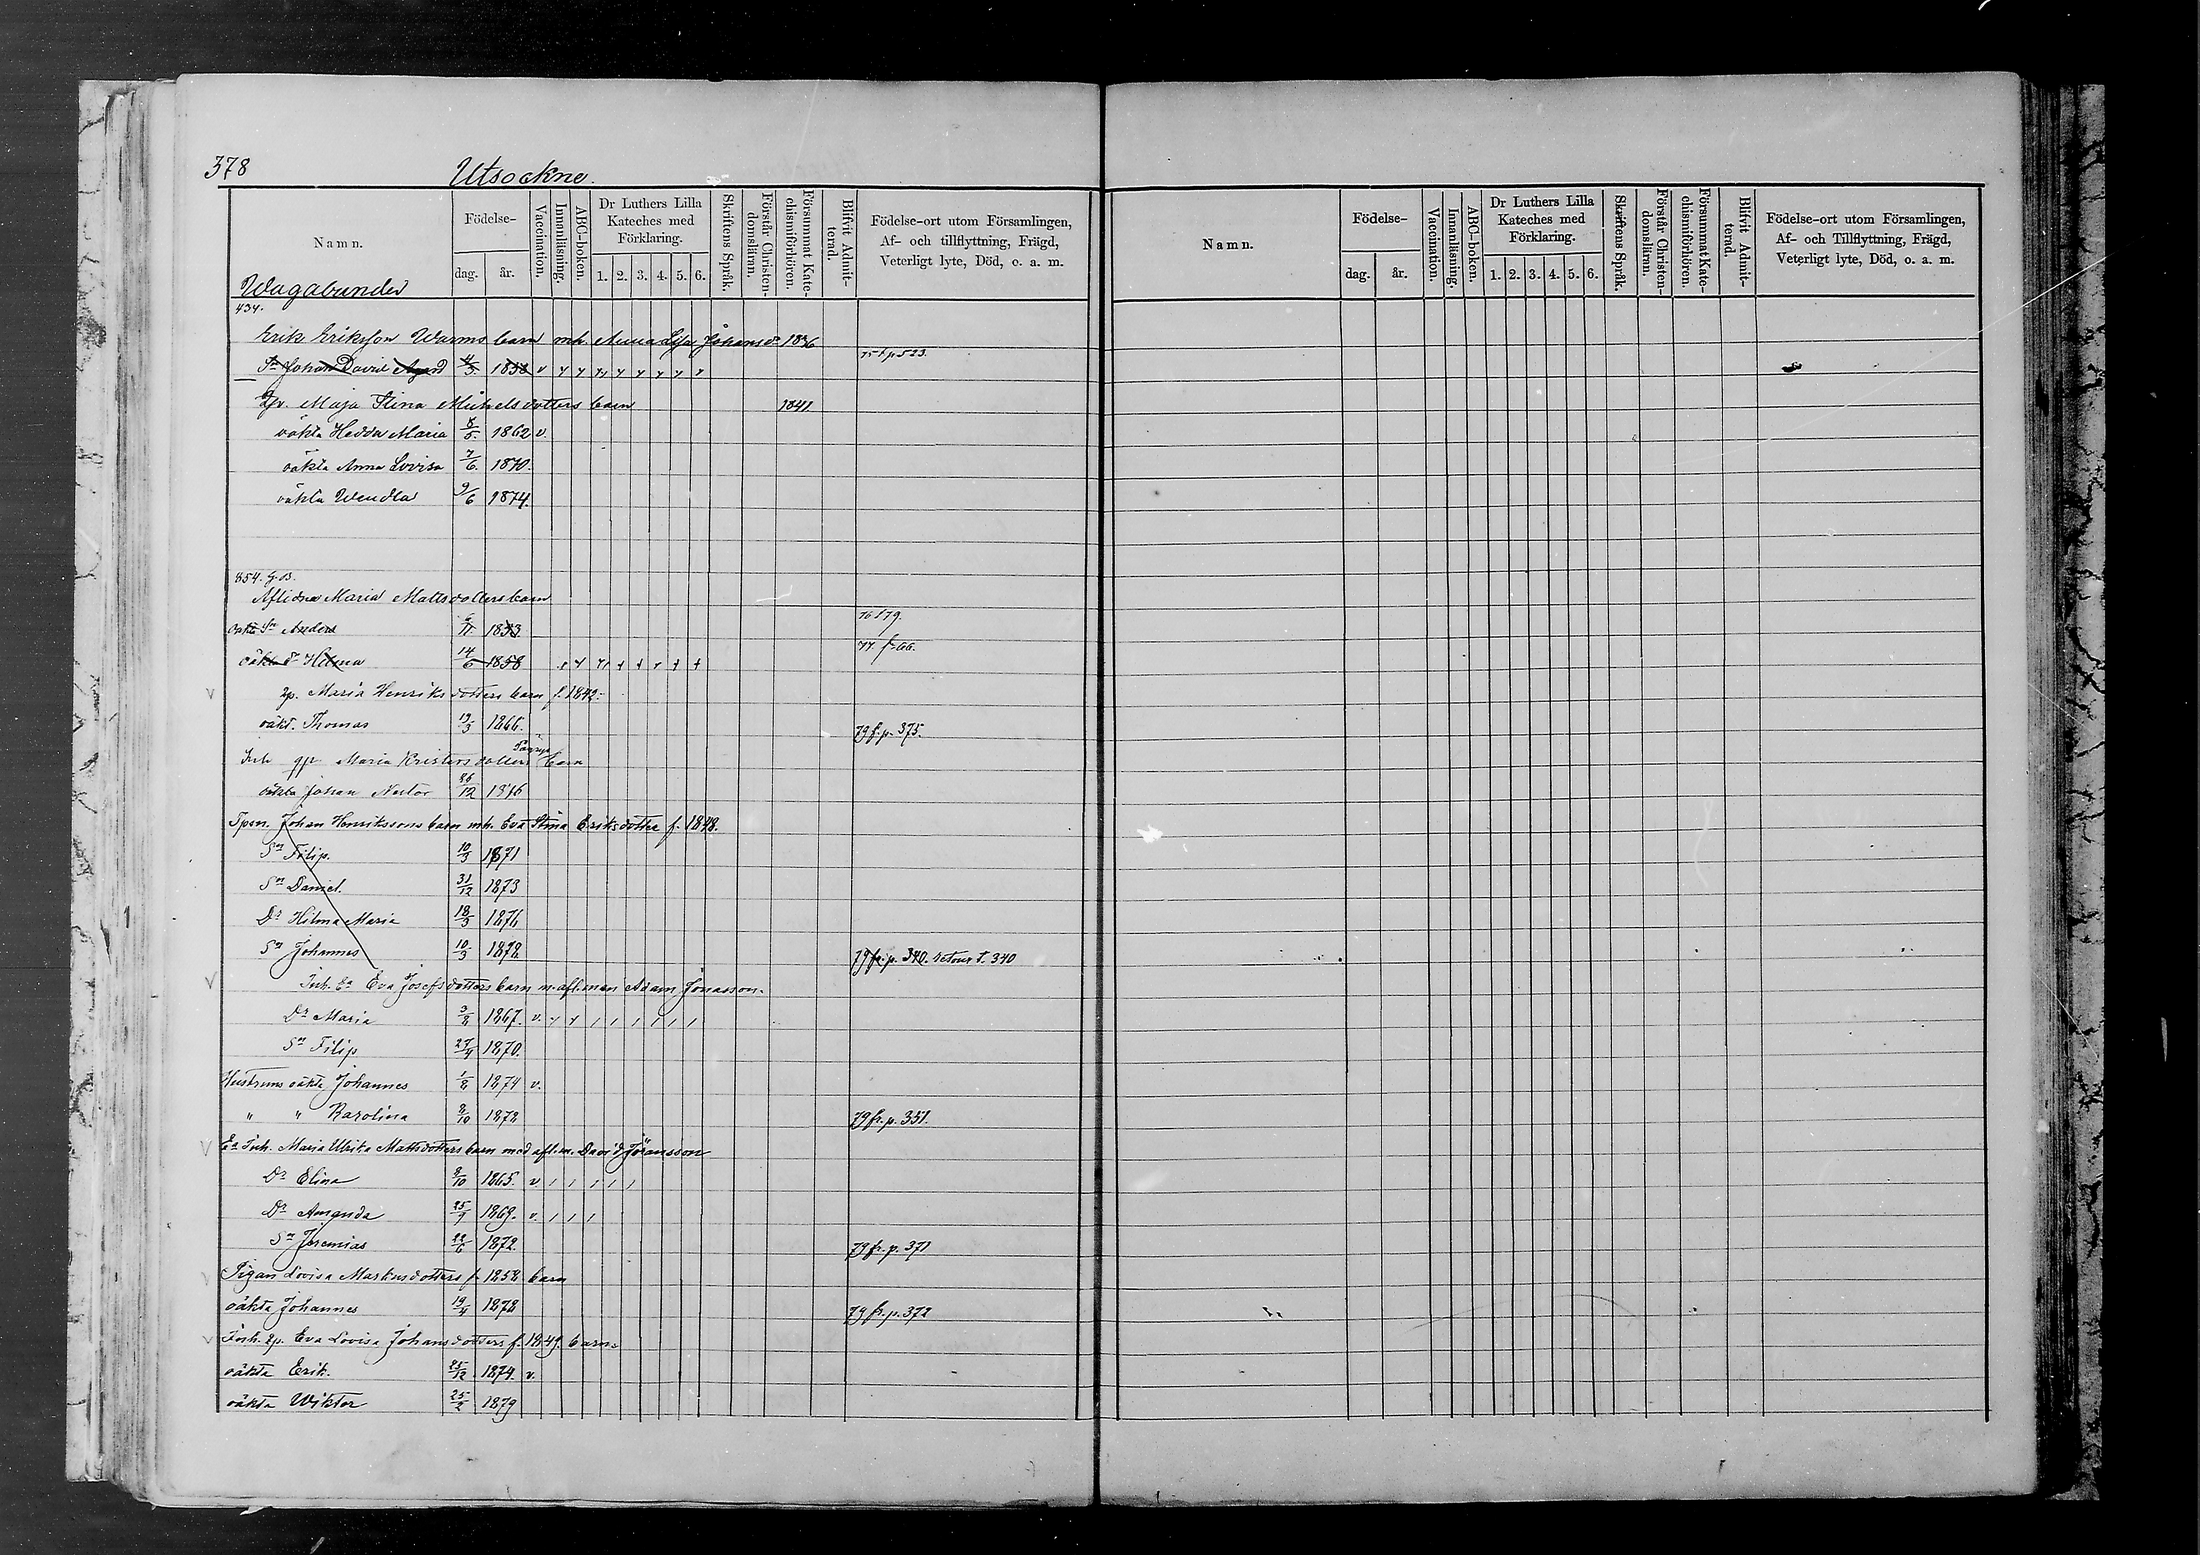 378 Utsockne.
Namn. Födelse- dag. år. Vaccination. Innanläsning. ABC-boken. Dr Luthers Lilla Kateches med Förklaring. 1. 2. 3. 4. 5. 6. Skriftens Språk. Förstår Christendomsläran. Försummat Katechismiförhören. Blifvit Admitterad. Födelse-ort utom Församlingen, Af- och tillflyttning, Frägd, Veterligt lyte, Död, o. a. m.
Namn. Födelse- dag. år. Vaccination. Innanläsning. ABC-boken. Dr Luthers Lilla Kateches med Förklaring. 1. 2. 3. 4. 5. 6. Skriftens Språk. Förstår Christendomsläran. Försummat Katechismiförhören. Blifvit Admitterad. Födelse-ort utom Församlingen, Af- och Tillflyttning, Frägd, Veterligt lyte, Död, o. a. m.
Wagabunder
434.
Erik Eriksson Warms barn mh. Anna Lisa Johansdr 1836
Sn Johan David 1858 v 75 t p 523.
Maja Stina Michelsdotters barn 1841
oäkta Hedda Maria 8/5. 1862 v.
oäkta Anna Lovisa 7/6. 1870.
oäkta Wendla 9/6 1874.
854.
Aflidna Maria Mattsdotters barn
oäkta Sn Anders 1853. 76 179.
oäkta dr Hilma 14/6 1858 77 f. 66.
2p. Maria Henriksdotters barn f. 1842.
oäkt. Thomas 19/3 1866. 79 f. p. 375.
Inh qp Maria Kristersdotters barn
oäkta Johan Nestor 26/12 1876
Tpsn. Johan Henrikssons barn mh. Eva Stina Eriksdotter f. 1848.
Sn Filip. 10/3 1871
Sn Daniel. 31/12 1873
Dr Hilma Maria 18/3 1876
Sn Johannes 10/3 1878. 79 fr. p. 340. retour t. 340
Inh. Ea Eva Josefsdotters barn m. afl. man Adam Jonasson.
Dr Maria 3/8 1867. v.
Sn Filip 27/4 1870.
Hustruns oäkta Johannes 1/8 1874 v.
" " Karolina 8/10 1878 79 fr. p. 351.
Ea Inh. Maria Ulrika Mattsdotters barn med afl. m. David Göransson
Dr Elina 8/10 1865. v
Dr Amanda 25/9 1869. v.
Sn Jeremias 22/6 1872. 79 fr. p. 371
Pigan Lovisa Markusdotters f. 1858 barn
oäkta Johannes 19/4 1878 79 fr. p. 372
Inh. 2p. Eva Lovisa Johansdotters f. 1849. barn
oäkta Erik. 25/12 1874. v.
oäkta Wiktor 25/2 1879